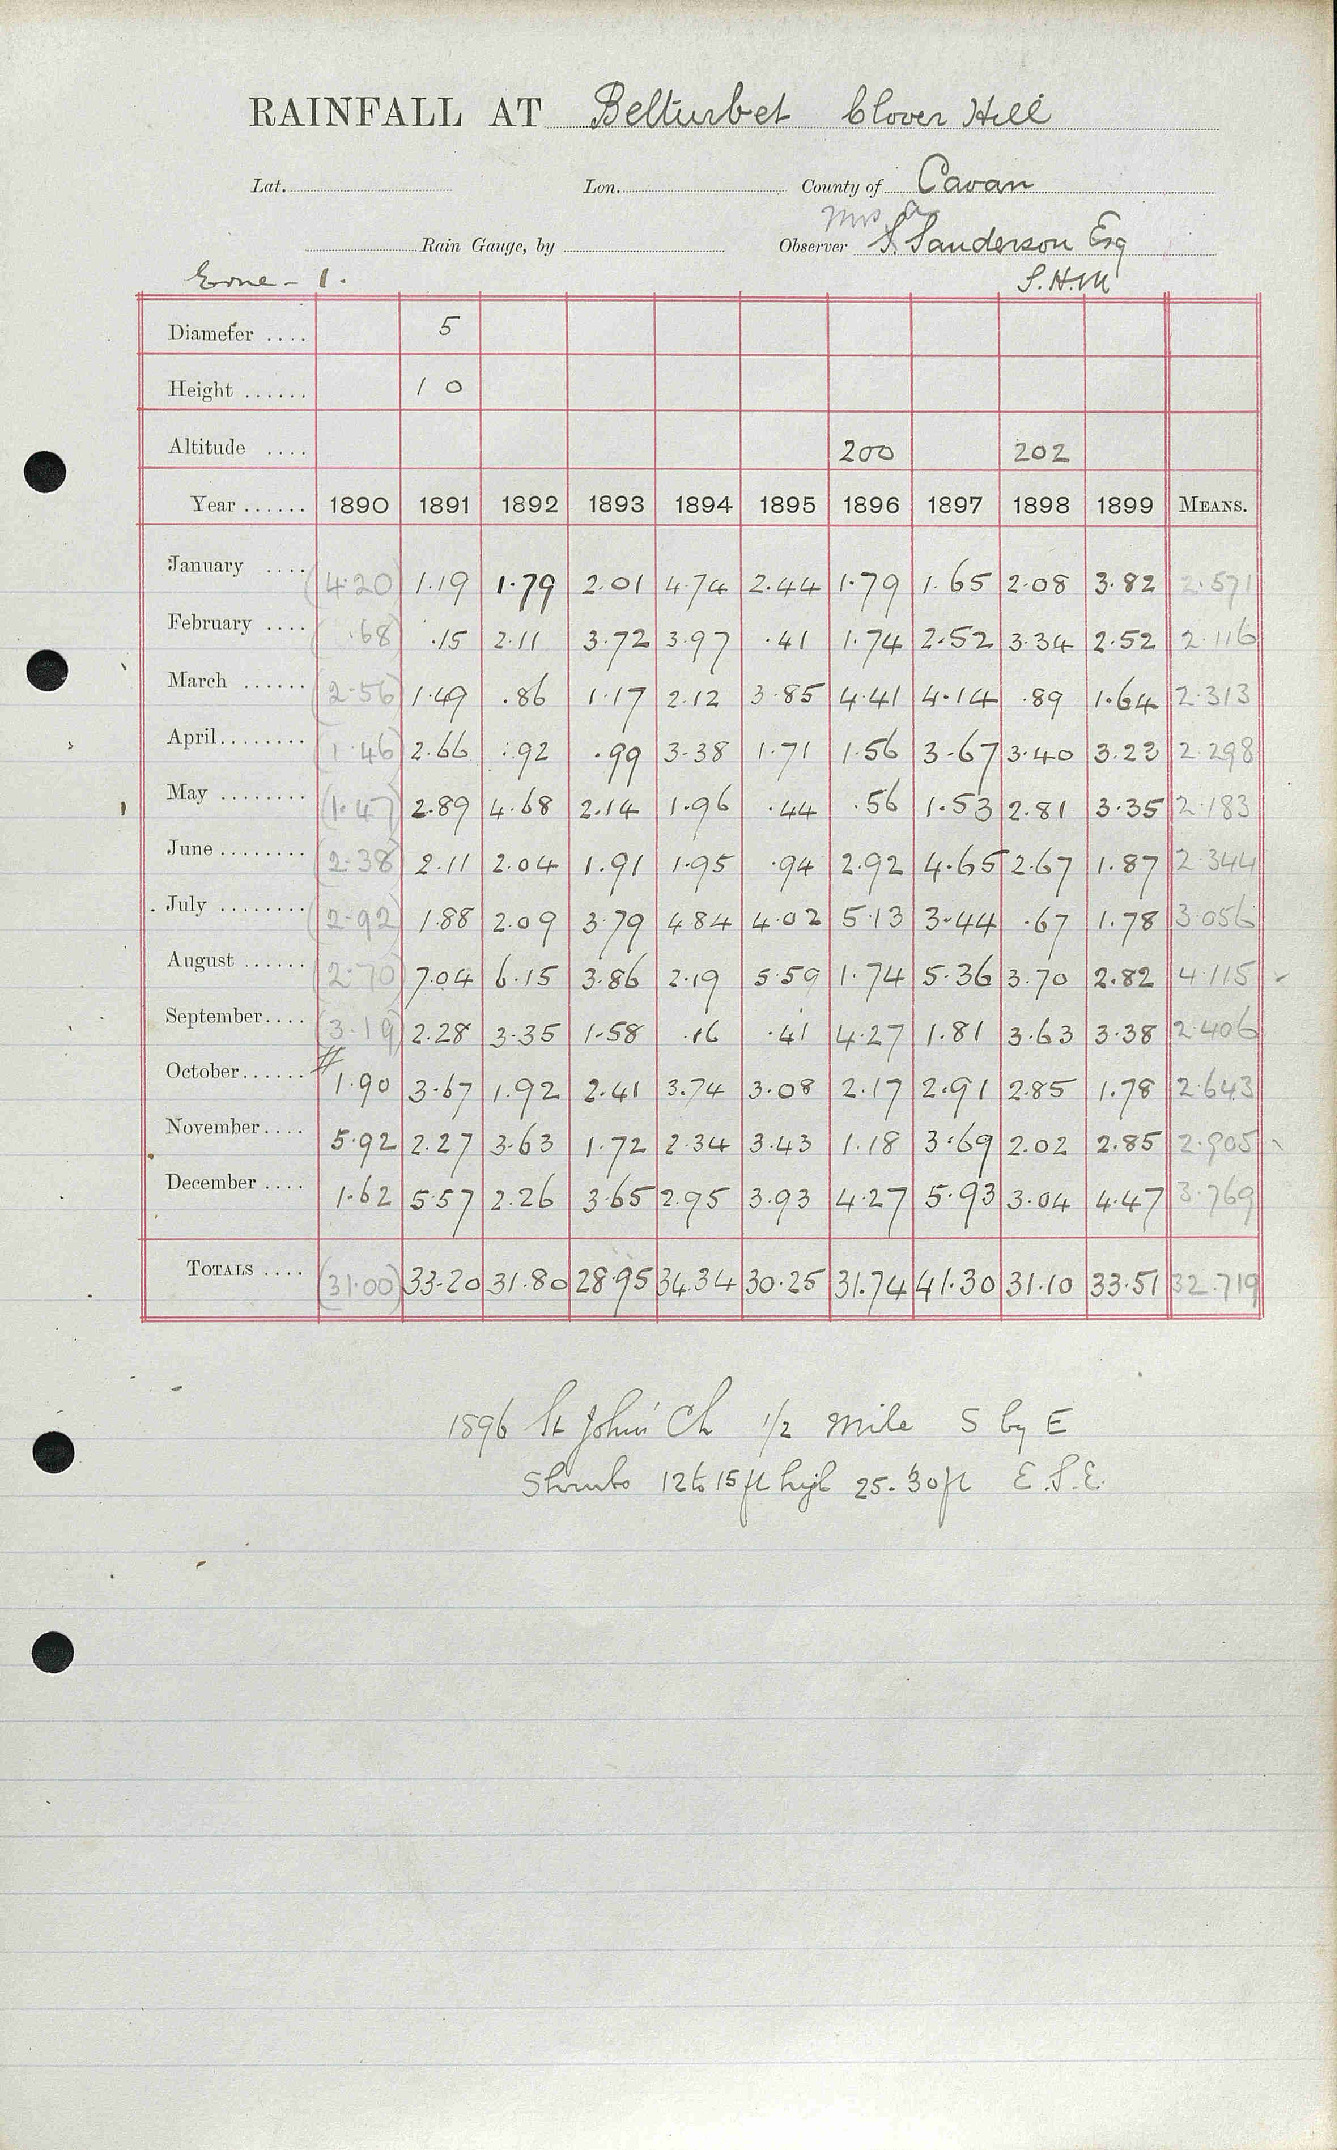 RAINFALL AT Belturbet Clover Hill
Lat. Lon. County of Cavan
Mrs a
Rain Gauge, by Observer S. Sanderson Esq
Erne - 1. S.H.M
Diameter .... 5
Height ...... 1 0
Altitude .... 200 202
Year ...... 1890 1891 1892 1893 1894 1895 1896 1897 1898 1899 MEANS.
January .... (4.20) 1.19 1.79 2.01 4.74 2.44 1.79 1.65 2.08 3.82 2.571
February .... .68) .15 2.11 3.72 3.97 .41 1.74 2.52 3.34 2.52 2.116
March ...... (2.56) 1.49 .86 1.17 2.12 3.85 4.41 4.14 .89 1.64 2.313
April........ (1.46) 2.66 .92 .99 3.38 1.71 1.56 3.67 3.40 3.23 2.298
May ........ (1.47) 2.89 4.68 2.14 1.96 .44 .56 1.53 2.81 3.35 2.183
June ........ (2.38) 2.11 2.04 1.91 1.95 .94 2.92 4.65 2.67 1.87 2.344
July ........ (2.92) 1.88 2.09 3.79 4.84 4.02 5.13 3.44 .67 1.78 3.056
August ...... (2.70) 7.04 6.15 3.86 2.19 5.59 1.74 5.36 3.70 2.82 4.115
September.... (3.19) 2.28 3.35 1.58 .16 .41 4.27 1.81 3.63 3.38 2.406
October...... # 1.90 3.67 1.92 2.41 3.74 3.08 2.17 2.91 2.85 1.78 2.643
November.... 5.92 2.27 3.63 1.72 2.34 3.43 1.18 3.69 2.02 2.85 2.905
December .... 1.62 5.57 2.26 3.65 2.95 3.93 4.27 5.93 3.04 4.47 3.769
TOTALS .... (31.00) 33.20 31.80 28.95 34.34 30.25 31.74 41.30 31.10 33.51 32.719
1896 St John's Ch 1/2 mile S by E
Shrubs 12 to 15 ft high 25.30 ft E.S.E.